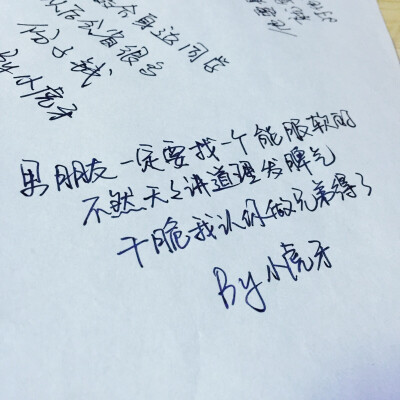 身边同学
以后会省很多
份子钱
By小虎牙
男朋友一定要找一个能服软的
不然天天讲道理发脾气
干脆我认你做兄弟得了
By小虎牙